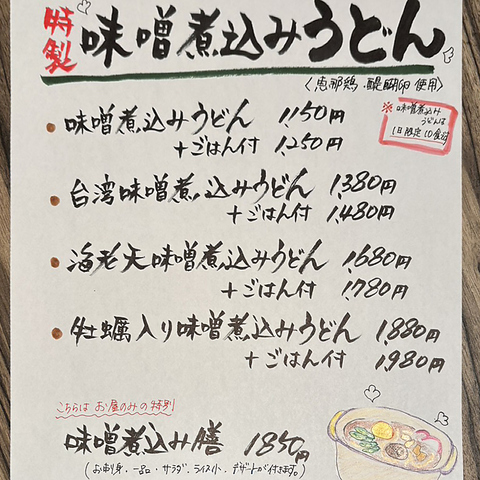 特製 味噌煮込みうどん
〈恵那鶏・醍醐卵使用〉
※味噌煮込み
うどんは
1日限定10食
・味噌煮込みうどん 1,150円
+ごはん付 1,250円
・台湾味噌煮込みうどん 1,380円
+ごはん付 1,480円
・海老天味噌煮込みうどん 1,680円
+ごはん付 1,780円
・牡蠣入り味噌煮込みうどん 1,880円
+ごはん付 1,980円
こちらは お昼のみの特別
味噌煮込み膳 1850円
(お刺身・一品・サラダ・ライス小・デザートが付きます。)